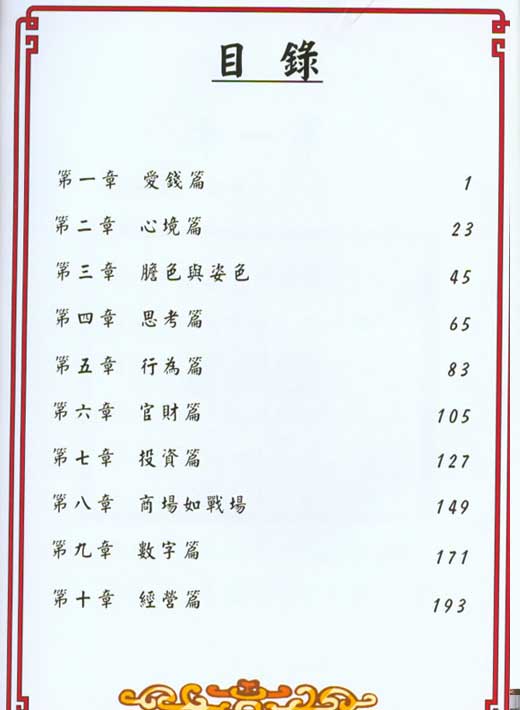 目 錄
第一章 愛錢篇 1
第二章 心境篇 23
第三章 膽色與姿色 45
第四章 思考篇 65
第五章 行為篇 83
第六章 官財篇 105
第七章 投資篇 127
第八章 商場如戰場 149
第九章 數字篇 171
第十章 經營篇 193